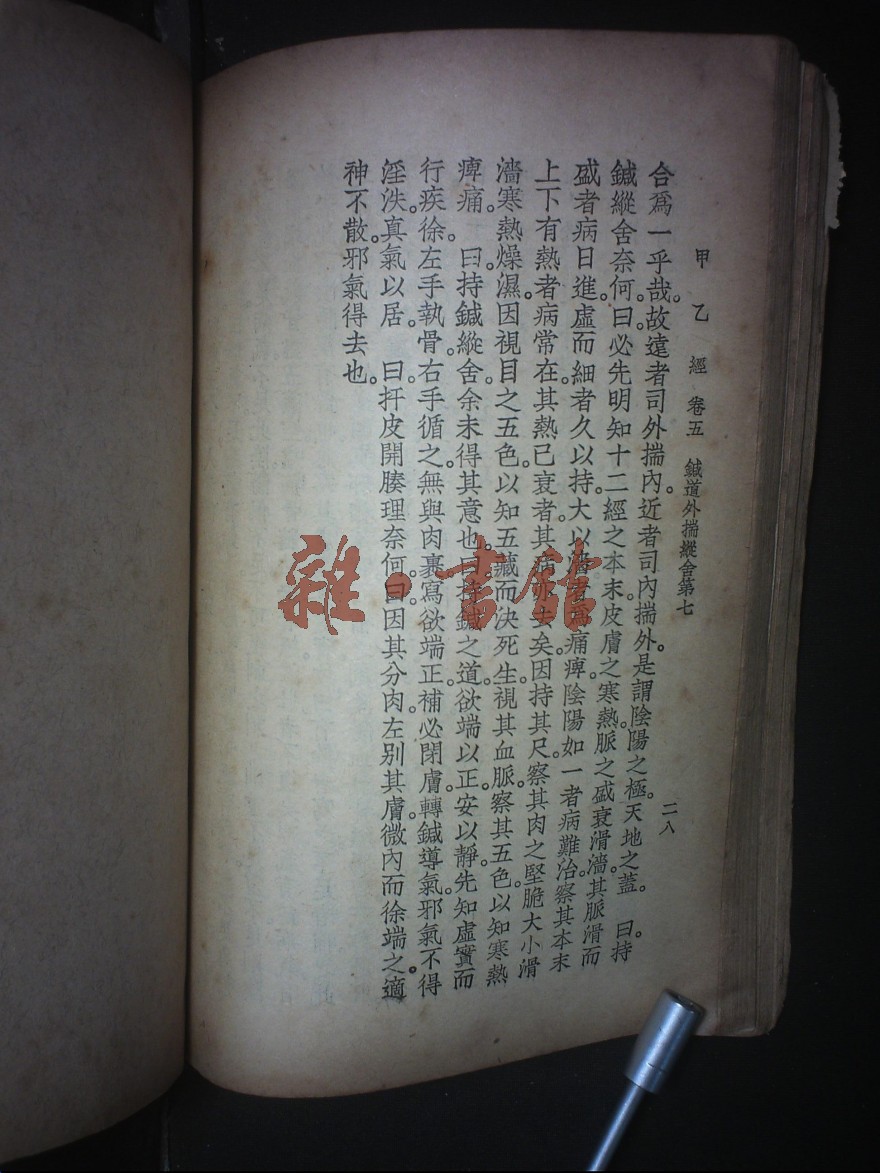 甲乙經 卷五 鍼道外揣縱舍第七 二八
合爲一乎哉。故遠者司外揣內。近者司內揣外。是謂陰陽之極。天地之蓋。 曰。持
鍼縱舍奈何。曰必先明知十二經之本末。皮膚之寒熱。脈之盛衰滑濇。其脈滑而
盛者病日進。虛而細者久以持。大以濇者爲痛痺。陰陽如一者病難治。察其本末
上下有熱者病常在。其熱已衰者。其病亦去矣。因持其尺。察其肉之堅脆大小滑
濇寒熱燥濕。因視目之五色。以知五藏而決死生。視其血脈。察其五色。以知寒熱
痺痛。 曰。持鍼縱舍。余未得其意也。曰持鍼之道。欲端以正。安以靜。先知虛實而
行疾徐。左手執骨。右手循之。無與肉裹。寫欲端正。補必閉膚。轉鍼導氣。邪氣不得
淫泆。真氣以居。 曰。扞皮開腠理奈何。曰。因其分肉。左別其膚。微內而徐端之。適
神不散。邪氣得去也。
雜·書館